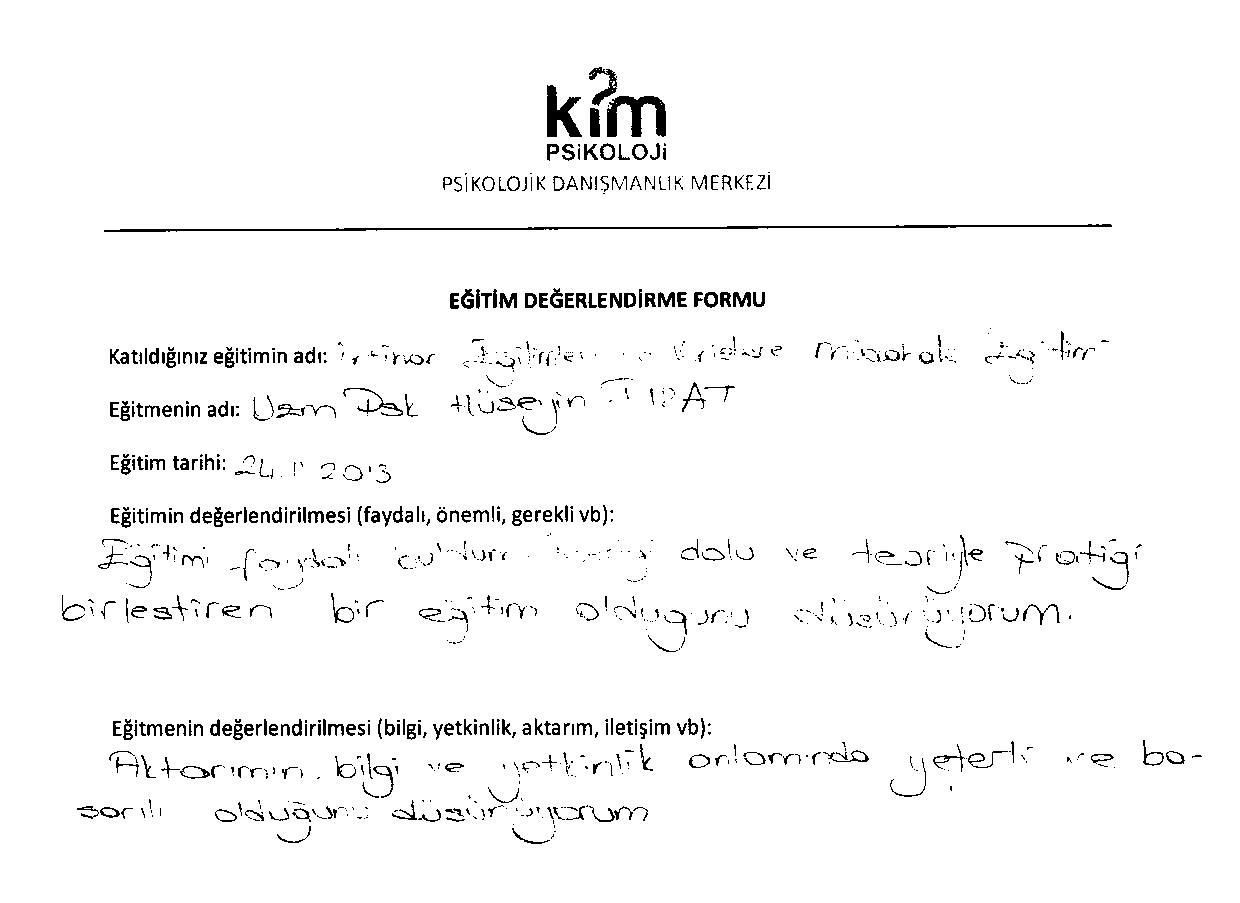 kim
PSiKOLOJi
PSİKOLOJİK DANIŞMANLIK MERKEZİ
EĞİTİM DEĞERLENDİRME FORMU
Katıldığınız eğitimin adı:
Eğitmenin adı: Uzm Psk Hüseyin
Eğitim tarihi: 2013
Eğitimin değerlendirilmesi (faydalı, önemli, gerekli vb):
Eğitimi faydalı dolu ve teoriyle pratiği
birlestiren bir eğitim olduğunu düsünüyorum.
Eğitmenin değerlendirilmesi (bilgi, yetkinlik, aktarım, iletişim vb):
Aktarımın, bilgi ve yetkinlik anlamında yeterli ve ba-
sarılı olduğunu düsünüyorum